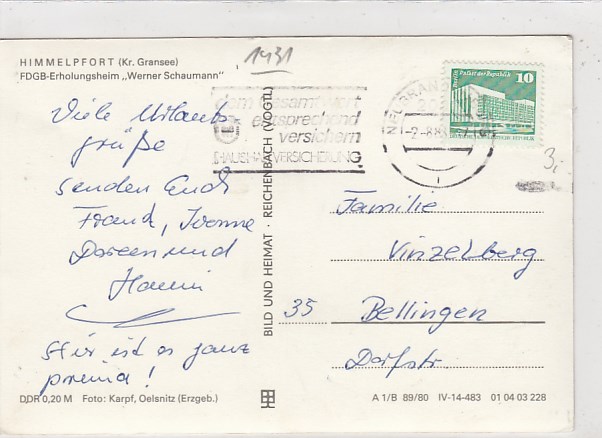 HIMMELPFORT (Kr. Gransee)
FDGB-Erholungsheim „Werner Schaumann"
1931
Viele Urlaubs
grüße
senden Euch
Frank, Ivonne
Doreen und
Hanni
Hir ist es ganz
prima!
DDR 0,20 M Foto: Karpf, Oelsnitz (Erzgeb.)
BILD UND HEIMAT · REICHENBACH (VOGTL)
dem Gesamtwert
entsprechend
versichern
HAUSHALTVERSICHERUNG
Berlin, Palast der Republik
10
Familie
Vinzelberg
35 Bellingen
Dorfstr.
A 1/B 89/80 IV-14-483 01 04 03 228